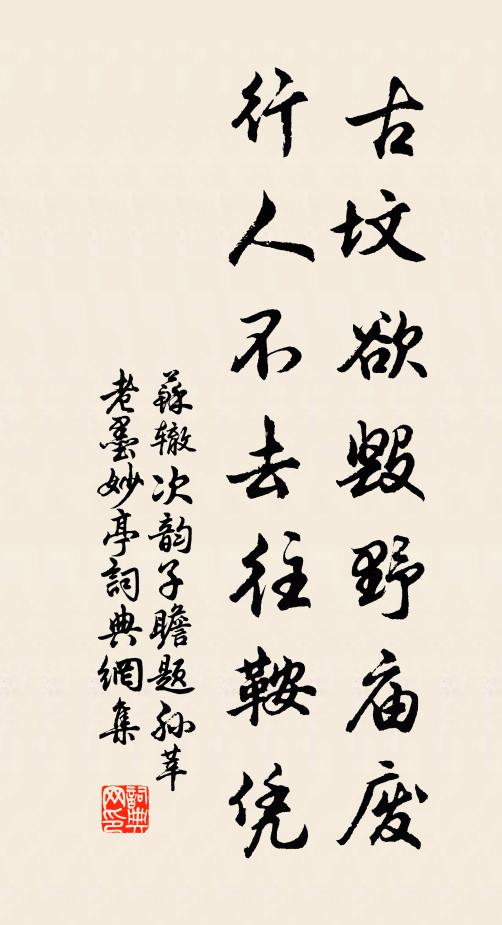 古坟欲毁野庙废
行人不去往鞍凭
蘇辙次韵子瞻题孙莘
老墨妙亭詞典網集
詞典
网印